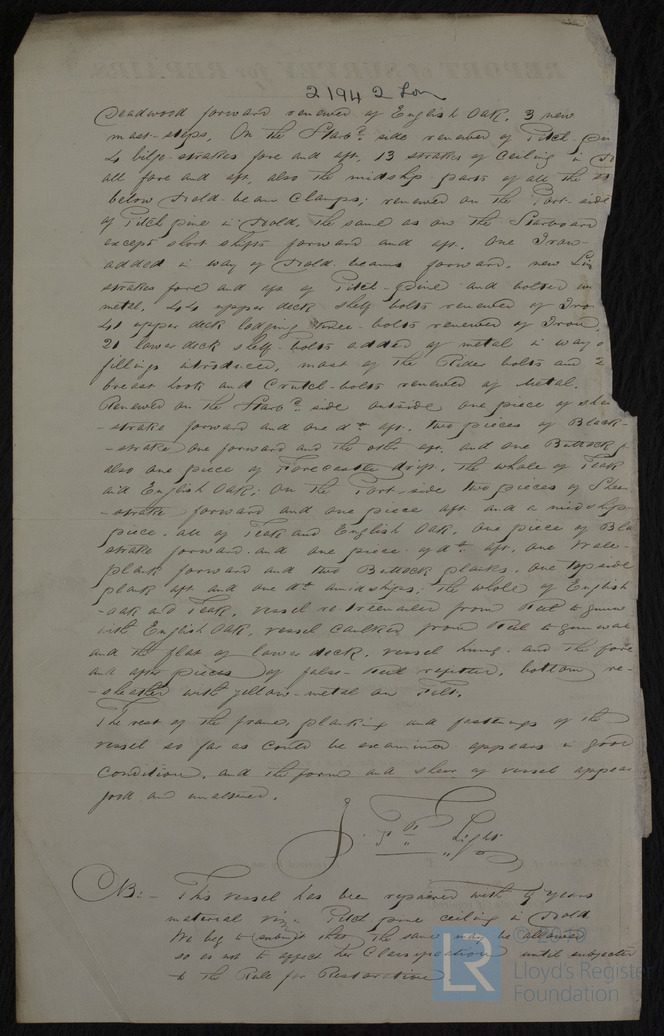 REPORT of SURVEY for REPAIRS
21942 Lon
Deadwood forward renewed of English Oak. 3 new
mast-steps. On the Starbd. side renewed of Pitch-pin
4 bilge-strakes fore and aft. 13 strakes of Ceiling in
all fore and aft, also the midship parts of all the
below Hold-beam Clamps; renewed on the Port-side
of Pitch pine in Hold, the same as on the Starboard
except short shifts forward and aft. One Iron-
added in way of Hold beams forward. new
strakes fore and aft of Pitch-pine and bolted
metal. 44 upper deck shelf bolts renewed of Iron
41 upper deck lodging knee-bolts renewed of Iron.
21 lower deck shelf-bolts added of metal in way
fillings introduced, most of the Rider bolts and 2
breast hook and Crutch-bolts renewed of Metal.
Renewed on the Starbd. side outside one piece of shee
-strake forward and one do. aft. two pieces of Black-
-strake one forward and the other aft. and one Buttock
also one piece of Forecastle drift. the whole of Teak
and English Oak; On the Port-side two pieces of Sheer
-strake forward and one piece aft and a midship
piece. all of Teak and English Oak. One piece of Bla
strake forward. and one piece of do. aft. one Wale-
plank forward and two Buttock planks. one topside
plank aft and one do. amidships; the whole of English
-oak and Teak. vessel re-treenailed from Keel to gunw
with English Oak. vessel caulked from Keel to gunwale
and the flat of lower deck. vessel hung. and the fore
and after pieces of false-Keel refitted. bottom re-
-sheathed with yellow-metal on Felt.
The rest of the frames, planking and fastenings of the
vessel so far as could be examined appears in good
Condition. and the form and sheer of vessel appear
good and unaltered.
Light
NB:- This vessel has been repaired with 9 years
material viz. Pitch pine ceiling in Hold
We beg to submit that the same may be allowed
so as not to affect her Classification until subjected
to the Rule for Restoration
LR
© 2020
Lloyd's Register
Foundation